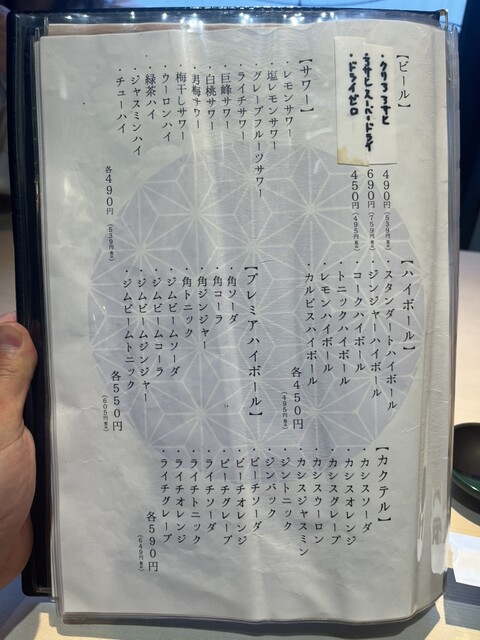 【ビール】
・クリアアサヒ 490円(539円税込)
・アサヒスーパードライ 690円(759円税込)
・ドライゼロ 450円(495円税込)
【サワー】
・レモンサワー
・塩レモンサワー
・グレープフルーツサワー
・ライチサワー
・巨峰サワー
・白桃サワー
・男梅サワー
・梅干しサワー
・ウーロンハイ
・緑茶ハイ
・ジャスミンハイ
・チューハイ
各490円(539円税込)
【ハイボール】
・スタンダートハイボール
・ジンジャーハイボール
・コークハイボール
・トニックハイボール
・レモンハイボール
・カルピスハイボール
各450円(495円税込)
【プレミアハイボール】
・角ソーダ
・角コーラ
・角ジンジャー
・角トニック
・ジムビームソーダ
・ジムビームコーラ
・ジムビームジンジャー
・ジムビームトニック
各550円(605円税込)
【カクテル】
・カシスソーダ
・カシスオレンジ
・カシスグレープ
・カシスウーロン
・カシスジャスミン
・ジントニック
・ジンバック
・ピーチソーダ
・ピーチオレンジ
・ピーチグレープ
・ライチソーダ
・ライチトニック
・ライチオレンジ
・ライチグレープ
各590円(649円税込)